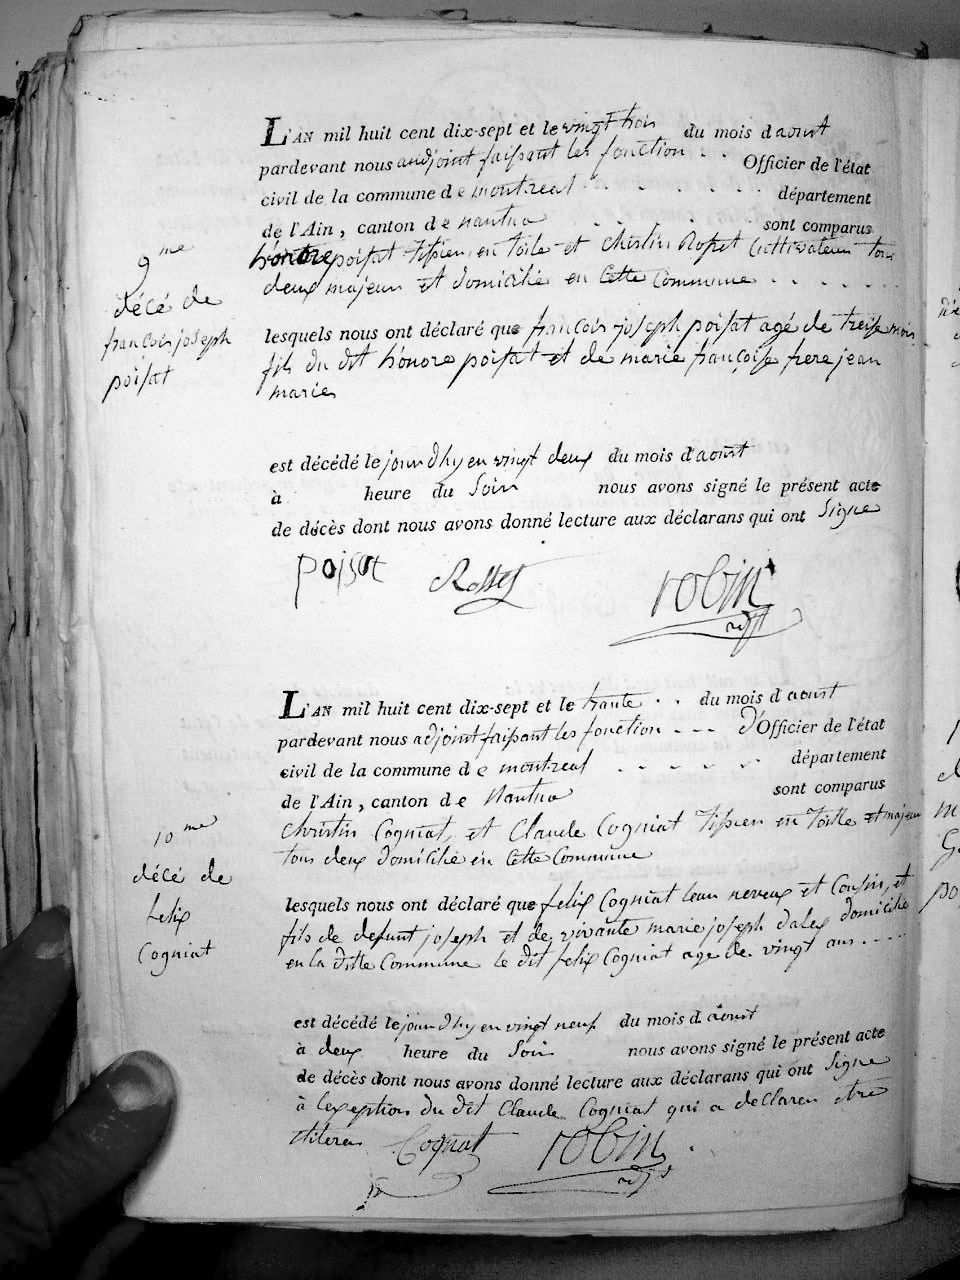 L'AN mil huit cent dix-sept et le vingt trois du mois d aoust
pardevant nous audjoint faissant les fonction . . Officier de l'état
civil de la commune de montreal département
de l'Ain, canton de nantua sont comparus
9 me
honore poisat tissien en toile et Christin Rosset Cultivateur tous
deux majeur et domicilié en cette Commune . . . . . . .
décé de
françois joseph
poisat
lesquels nous ont déclaré que françois joseph poisat agé de treise mois
fils du dit honore poisat et de marie françoise frere jean
marie
est décédé le jour d hy en vingt deux du mois d aoust
à heure du Soir nous avons signé le présent acte
de décès dont nous avons donné lecture aux déclarans qui ont Signe
poisat Rosset robin
adjt
L'AN mil huit cent dix-sept et le trante . . du mois d aoust
pardevant nous adjoint faissant les fonction - - - d'Officier de l'état
civil de la commune de montreal - - - - - - département
de l'Ain, canton de Nantua sont comparus
10 me
Christin Cogniat, et Claude Cogniat Tissien en Toille et majeur
tous deux domicilié en cette Commune
décé de
felix
Cogniat
lesquels nous ont déclaré que felix Cogniat leur neveux et Cousin, et
fils de defunt joseph et de vivante marie joseph dalex domicilié
en la ditte Commune le dit felix Cogniat agé de vingt ans . . . .
est décédé le jour d hy en vingt neuf du mois d aoust
à deux heure du Soir nous avons signé le présent acte
de décès dont nous avons donné lecture aux déclarans qui ont Signe
à l'exeption du dit Claude Cogniat qui a declarer etre
iliteré Cogniat robin
adjt